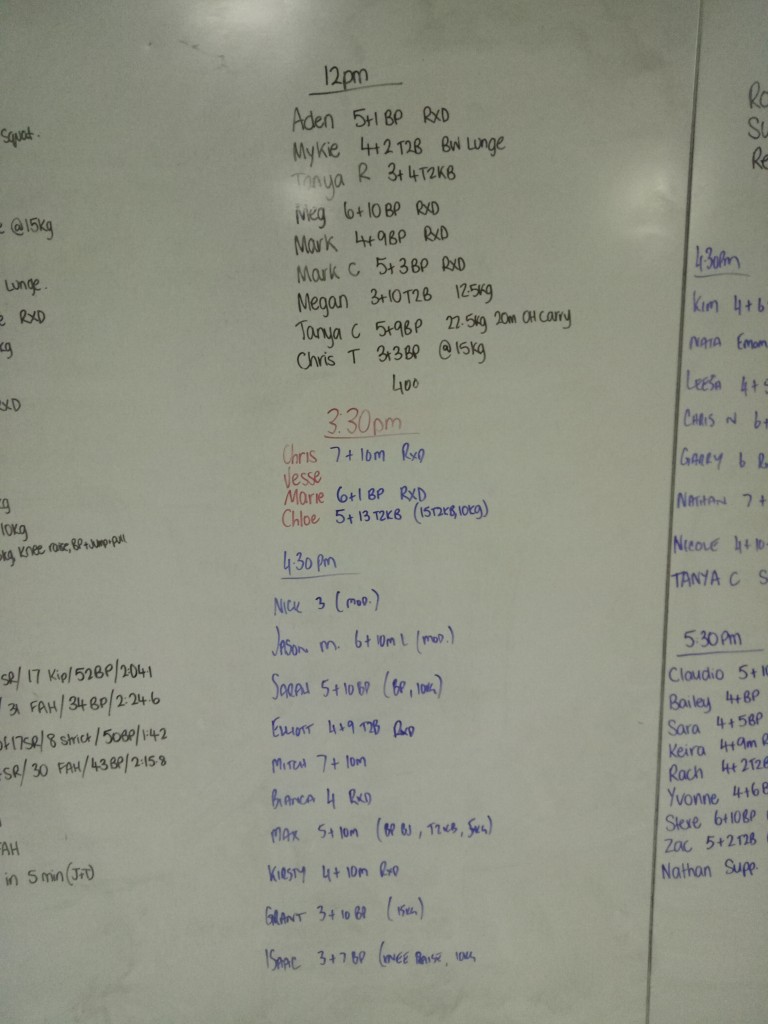 Squat.
@15kg
Lunge.
RXD
kg
RXD
kg
10kg
kg, Knee raise, BP+Jump+pull
SR/ 17 Kip/52BP/2:04.1
/ 31 FAH/34BP/2:24.6
17SR/8 strict/50BP/1:42
SR/ 30 FAH/43BP/2:15.8
FAH
in 5min
12pm
Aden 5+1 BP RXD
Mykie 4+2 T2B BW Lunge
Tanya R 3+4T2KB
Meg 6+10BP RXD
Mark 4+9BP RXD
Mark C 5+3BP RXD
Megan 3+10T2B 12.5kg
Tanya C 5+9BP 22.5kg 20m OH Carry
Chris T 3+3BP @15kg
400
3:30pm
Chris 7+10m RXD
Jesse
Marie 6+1 BP RXD
Chloe 5+13T2KB (15T2KB,10kg)
4:30pm
NICK 3 (mod.)
JASON m. 6+10m L (mod.)
SARAH 5+10BP (BP, 10KG)
ELLIOTT 4+9 T2B RXD
MITCH 7+10m
BIANCA 4 RXD
MAX 5+10m (BP BW, T2KB, 5KG)
KIRSTY 4+10m RXD
GRANT 3+10BP (15KG)
ISAAC 3+7BP (KNEE RAISE, 10KG
Ro
Su
Re
4:30pm
Kim 4+6
NATA Emom
LEESA 4+
CHRIS N 6+
GARRY 6 R
NATHAN 7+
NICOLE 4+10
TANYA C S
5:30pm
Claudio 5+10
Bailey 4+BP
Sara 4+5BP
Keira 4+9m R
Rach 4+2T2B
Yvonne 4+6B
Steve 6+10BP
Zac 5+2T2B
Nathan Supp.